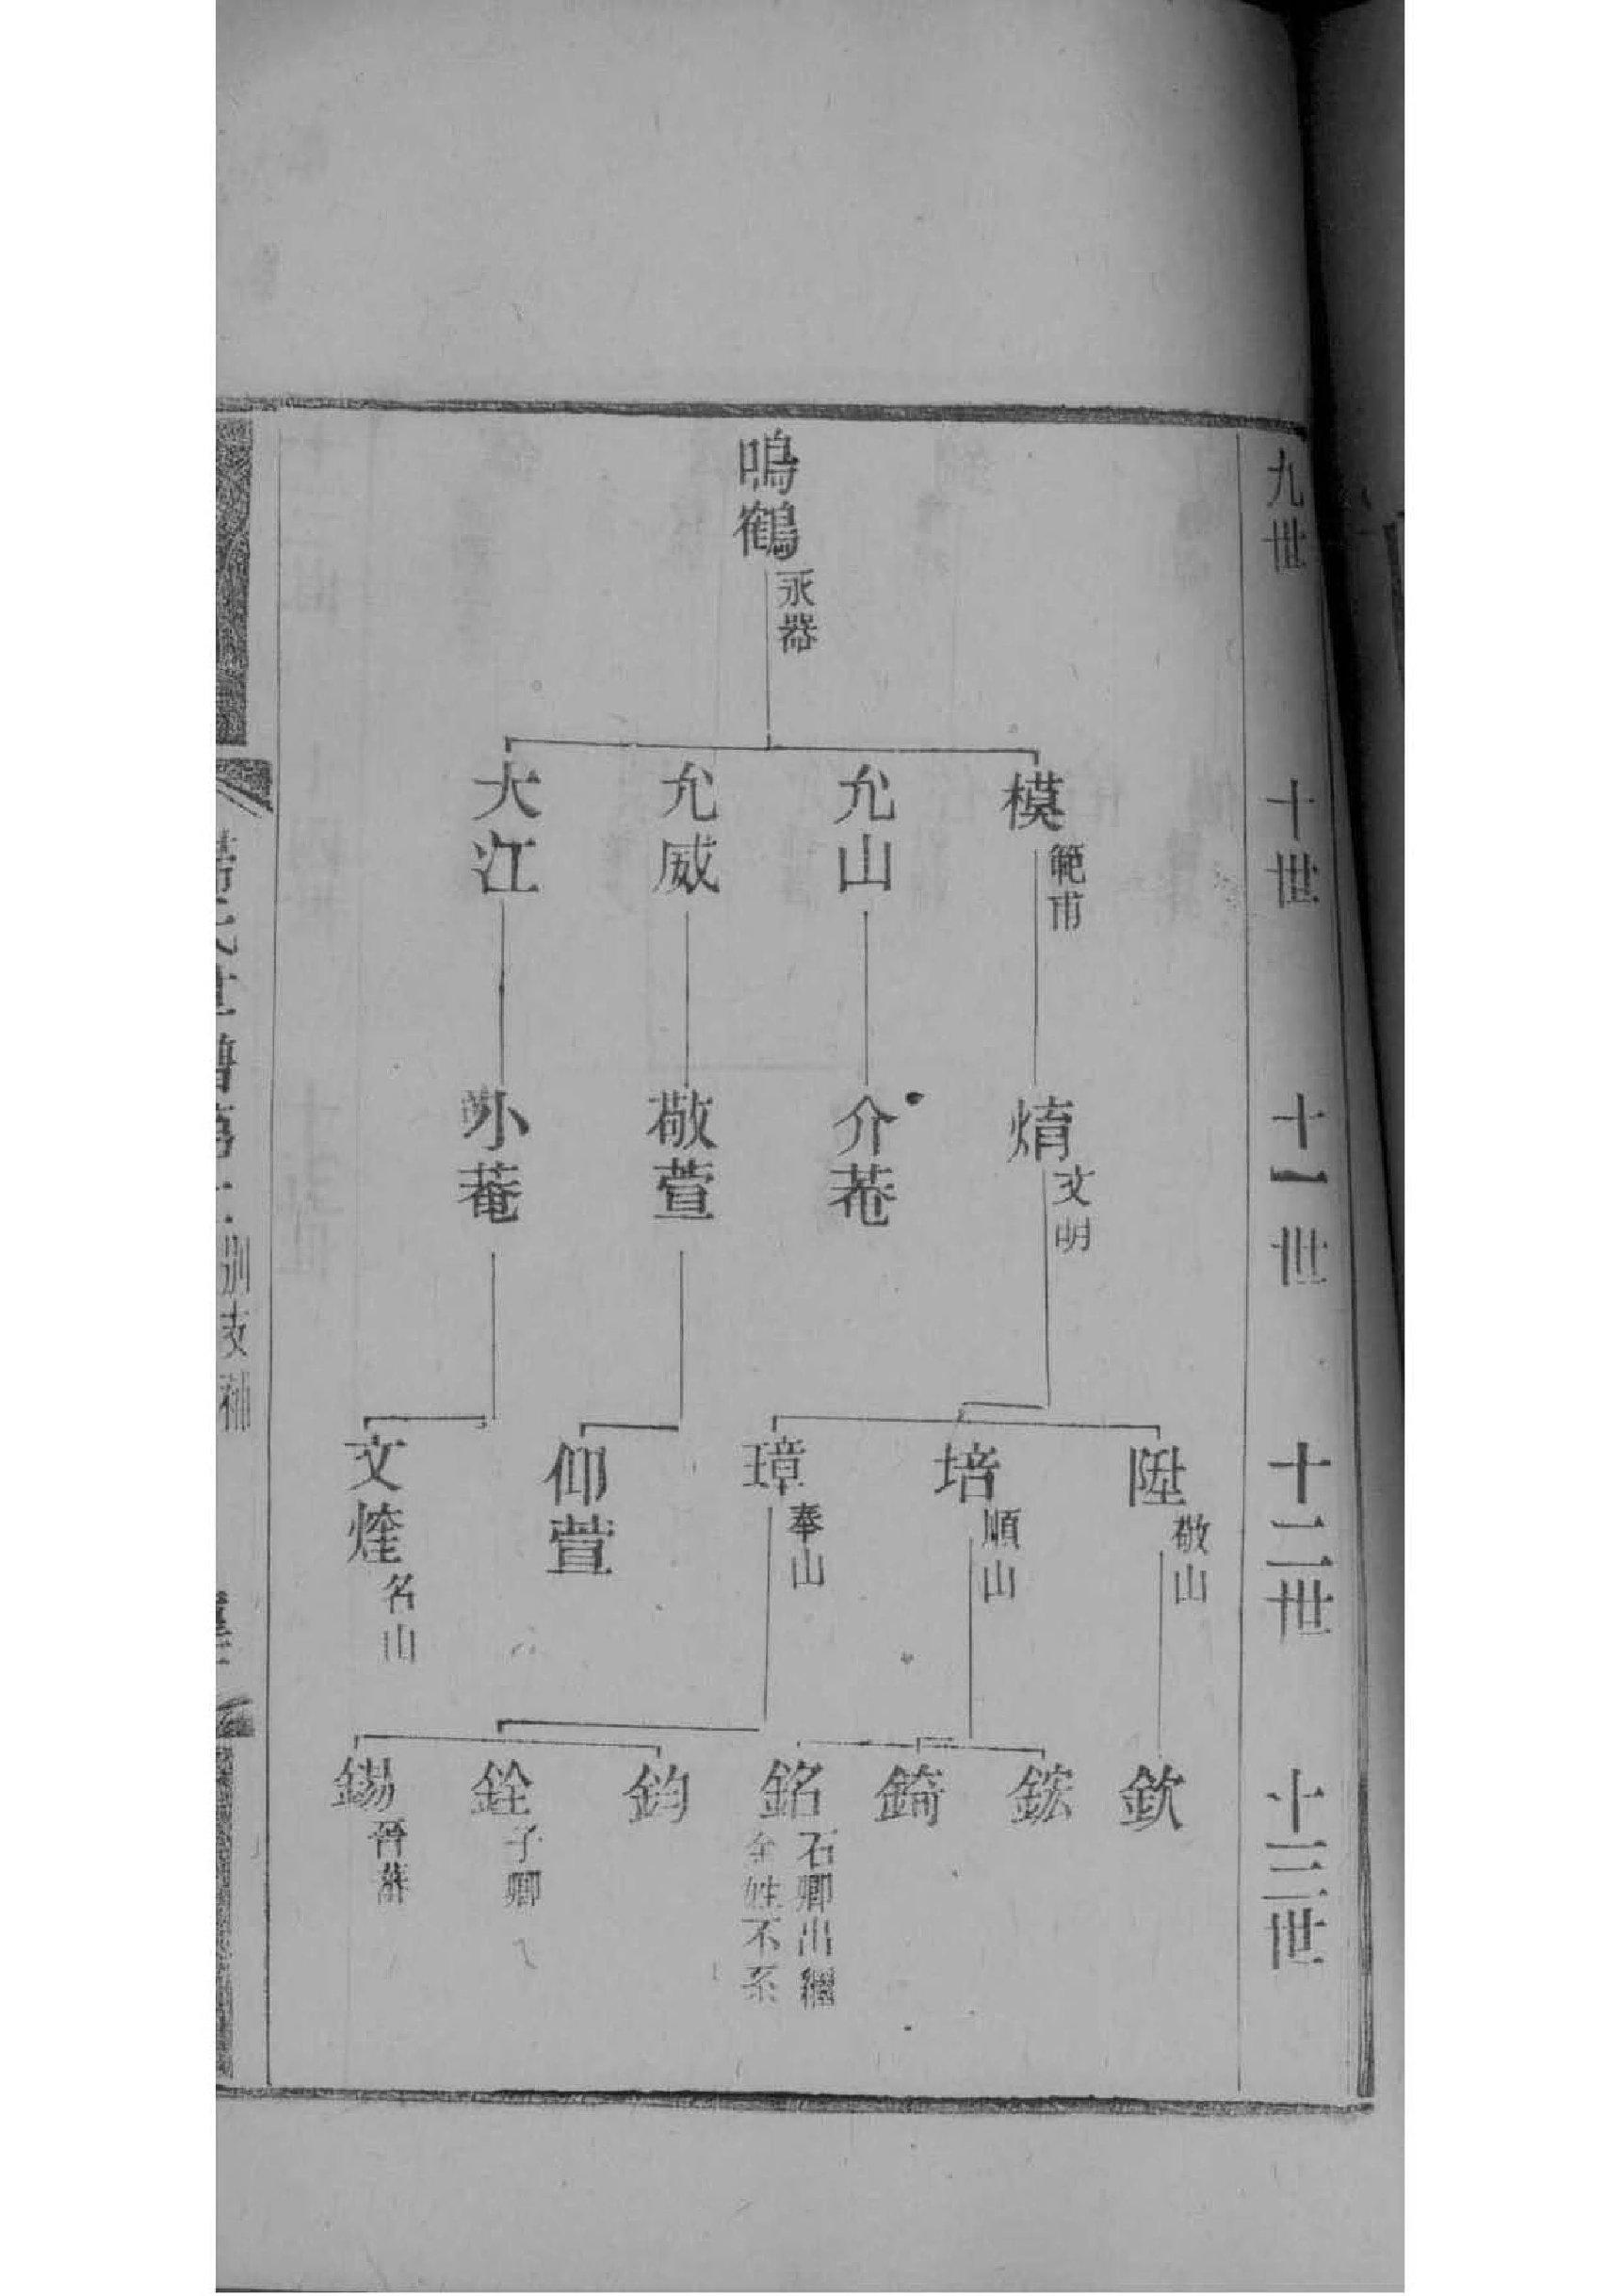 九世
鳴鶴
永器
十世
模
範甫
允山
允威
大江
十一世
焴
文明
介菴
敬萱
小菴
十二世
陞
敬山
培
順山
璋
奉山
仰萱
文煃
名山
十三世
欽
鋐
錡
銘
石卿出繼
姓不系
鈞
銓
子卿
錫
晉蕃
氏世譜
支補